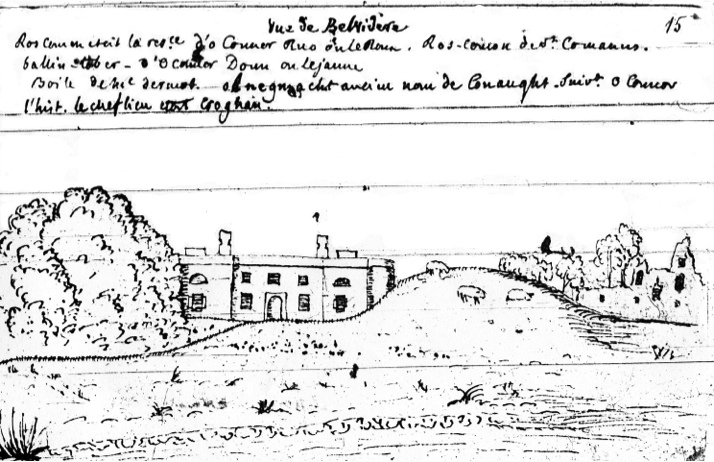 Vue de Belvidère
15
Roscommon etoit la resce d'o Conner Ruo ou le Roux. Ros-comon de St. Comanus.
ballin tober - d'O Conner Donn ou le jaune
Boile de Mc dermot. nom de Conaught - Suivt. O Connor
l'hist. le chef lieu etoit Croghan.